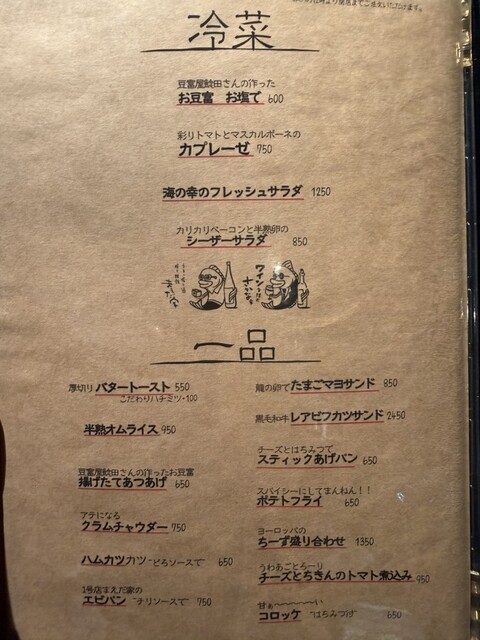 冷菜
豆富屋鯰田さんの作った
お豆富 お塩で 600
彩りトマトとマスカルポーネの
カプレーゼ 750
海の幸のフレッシュサラダ 1250
カリカリベーコンと半熟卵の
シーザーサラダ 850
一品
厚切り バタートースト 550
こだわりハチミツ・100
半熟オムライス 950
豆富屋鯰田さんの作ったお豆富
揚げたてあつあげ 650
アテになる
クラムチャウダー 750
ハムカツカツ "どろソースで" 650
1号店まえだ家の
エビパン "チリソースで" 750
龍の卵で たまごマヨサンド 850
黒毛和牛 レアビフカツサンド 2450
チーズとはちみつで
スティックあげパン 650
スパイシーにしてまんねん！！
ポテトフライ 650
ヨーロッパの
ちーず盛り合わせ 1350
うわあごとろーり
チーズとちきんのトマト煮込み 950
甘ぁ〜〜〜〜〜い
コロッケ "はちみつ" 650